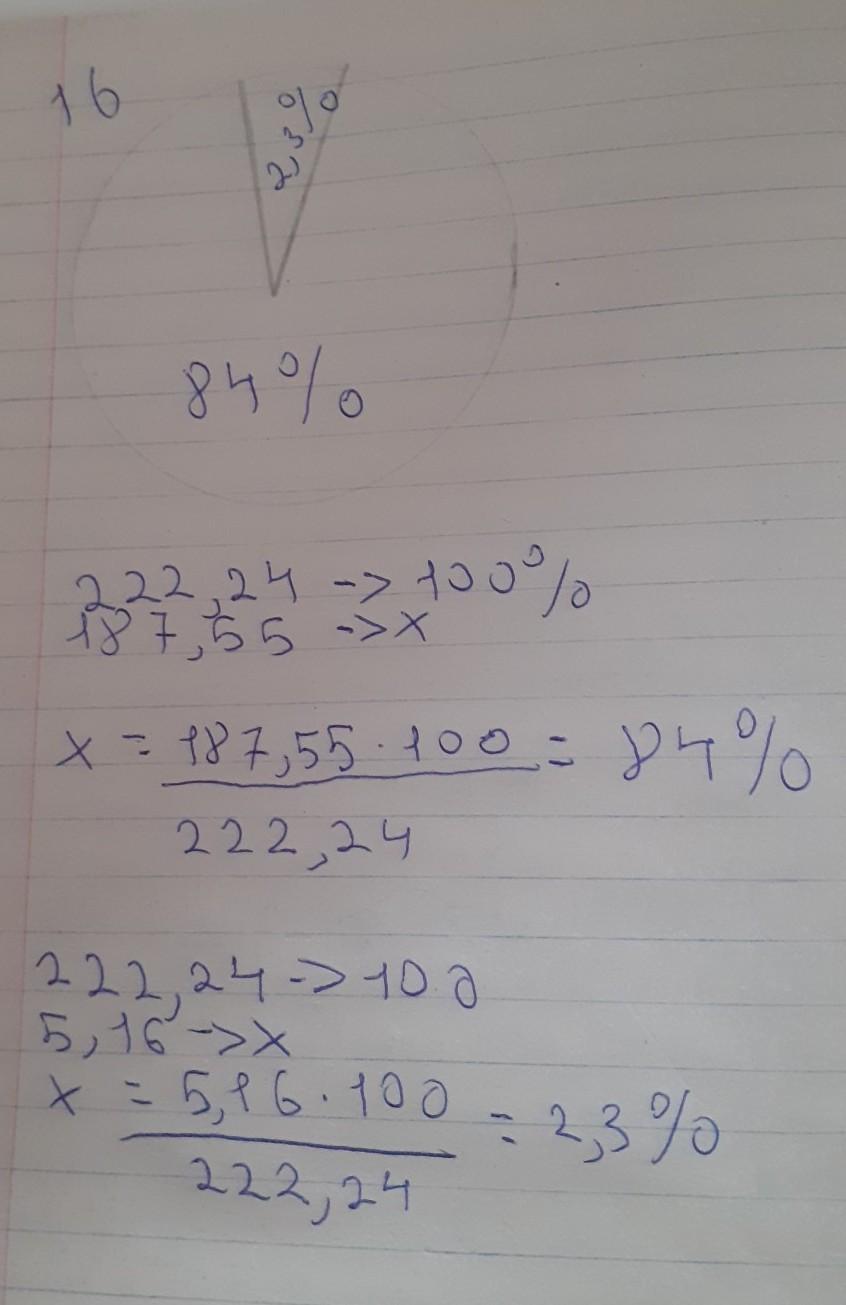 16
2,3%
84%
222,24 -> 100%
187,55 -> x
x = 187,55 · 100 = 84%
222,24
222,24 -> 100
5,16 -> x
x = 5,16 · 100 = 2,3%
222,24